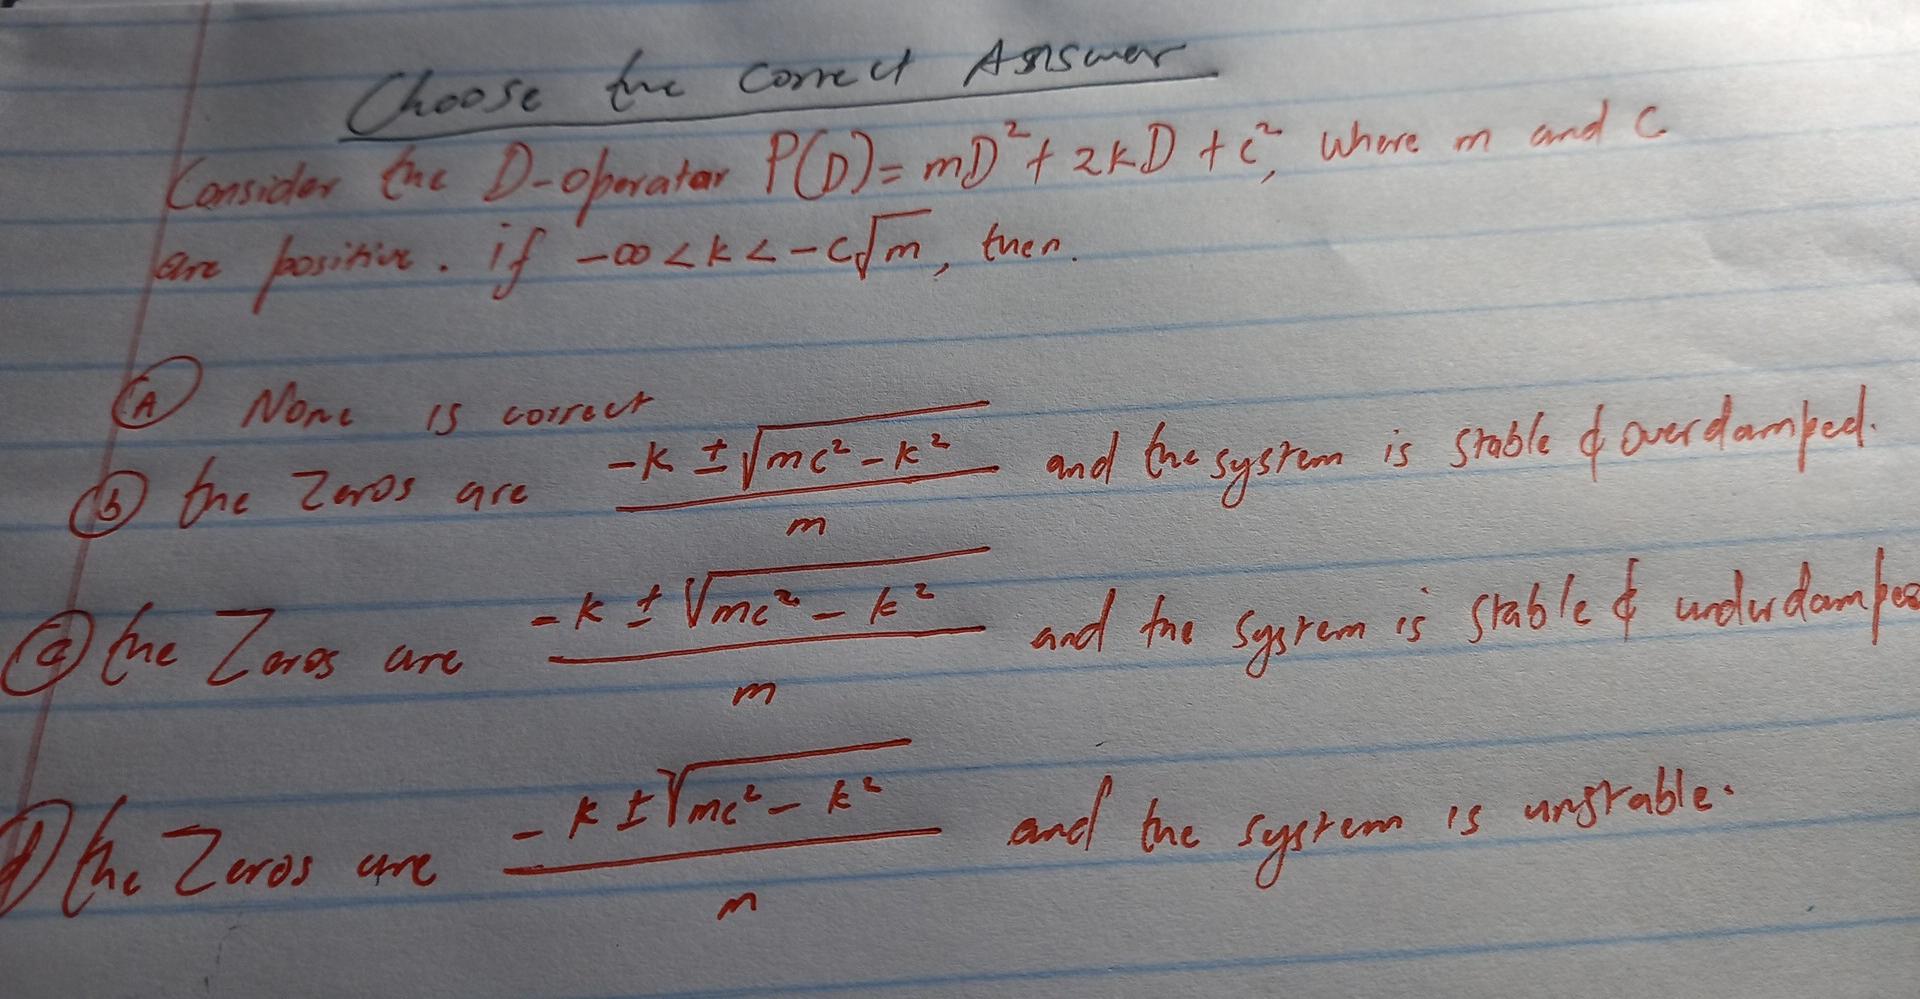 Choose the correct Answer
Consider the D-operator P(D) = mD² + 2kD + c², where m and c
are positive. if -∞ < k < -c√m, then.
Ⓐ None is correct
ⓑ the Zeros are (-k ± √(mc² - k²))/m and the system is stable & overdamped.
ⓒ the Zeros are (-k ± √(mc² - k²))/m and the system is stable & underdamped
ⓓ the Zeros are (-k ± √(mc² - k²))/m and the system is unstable.